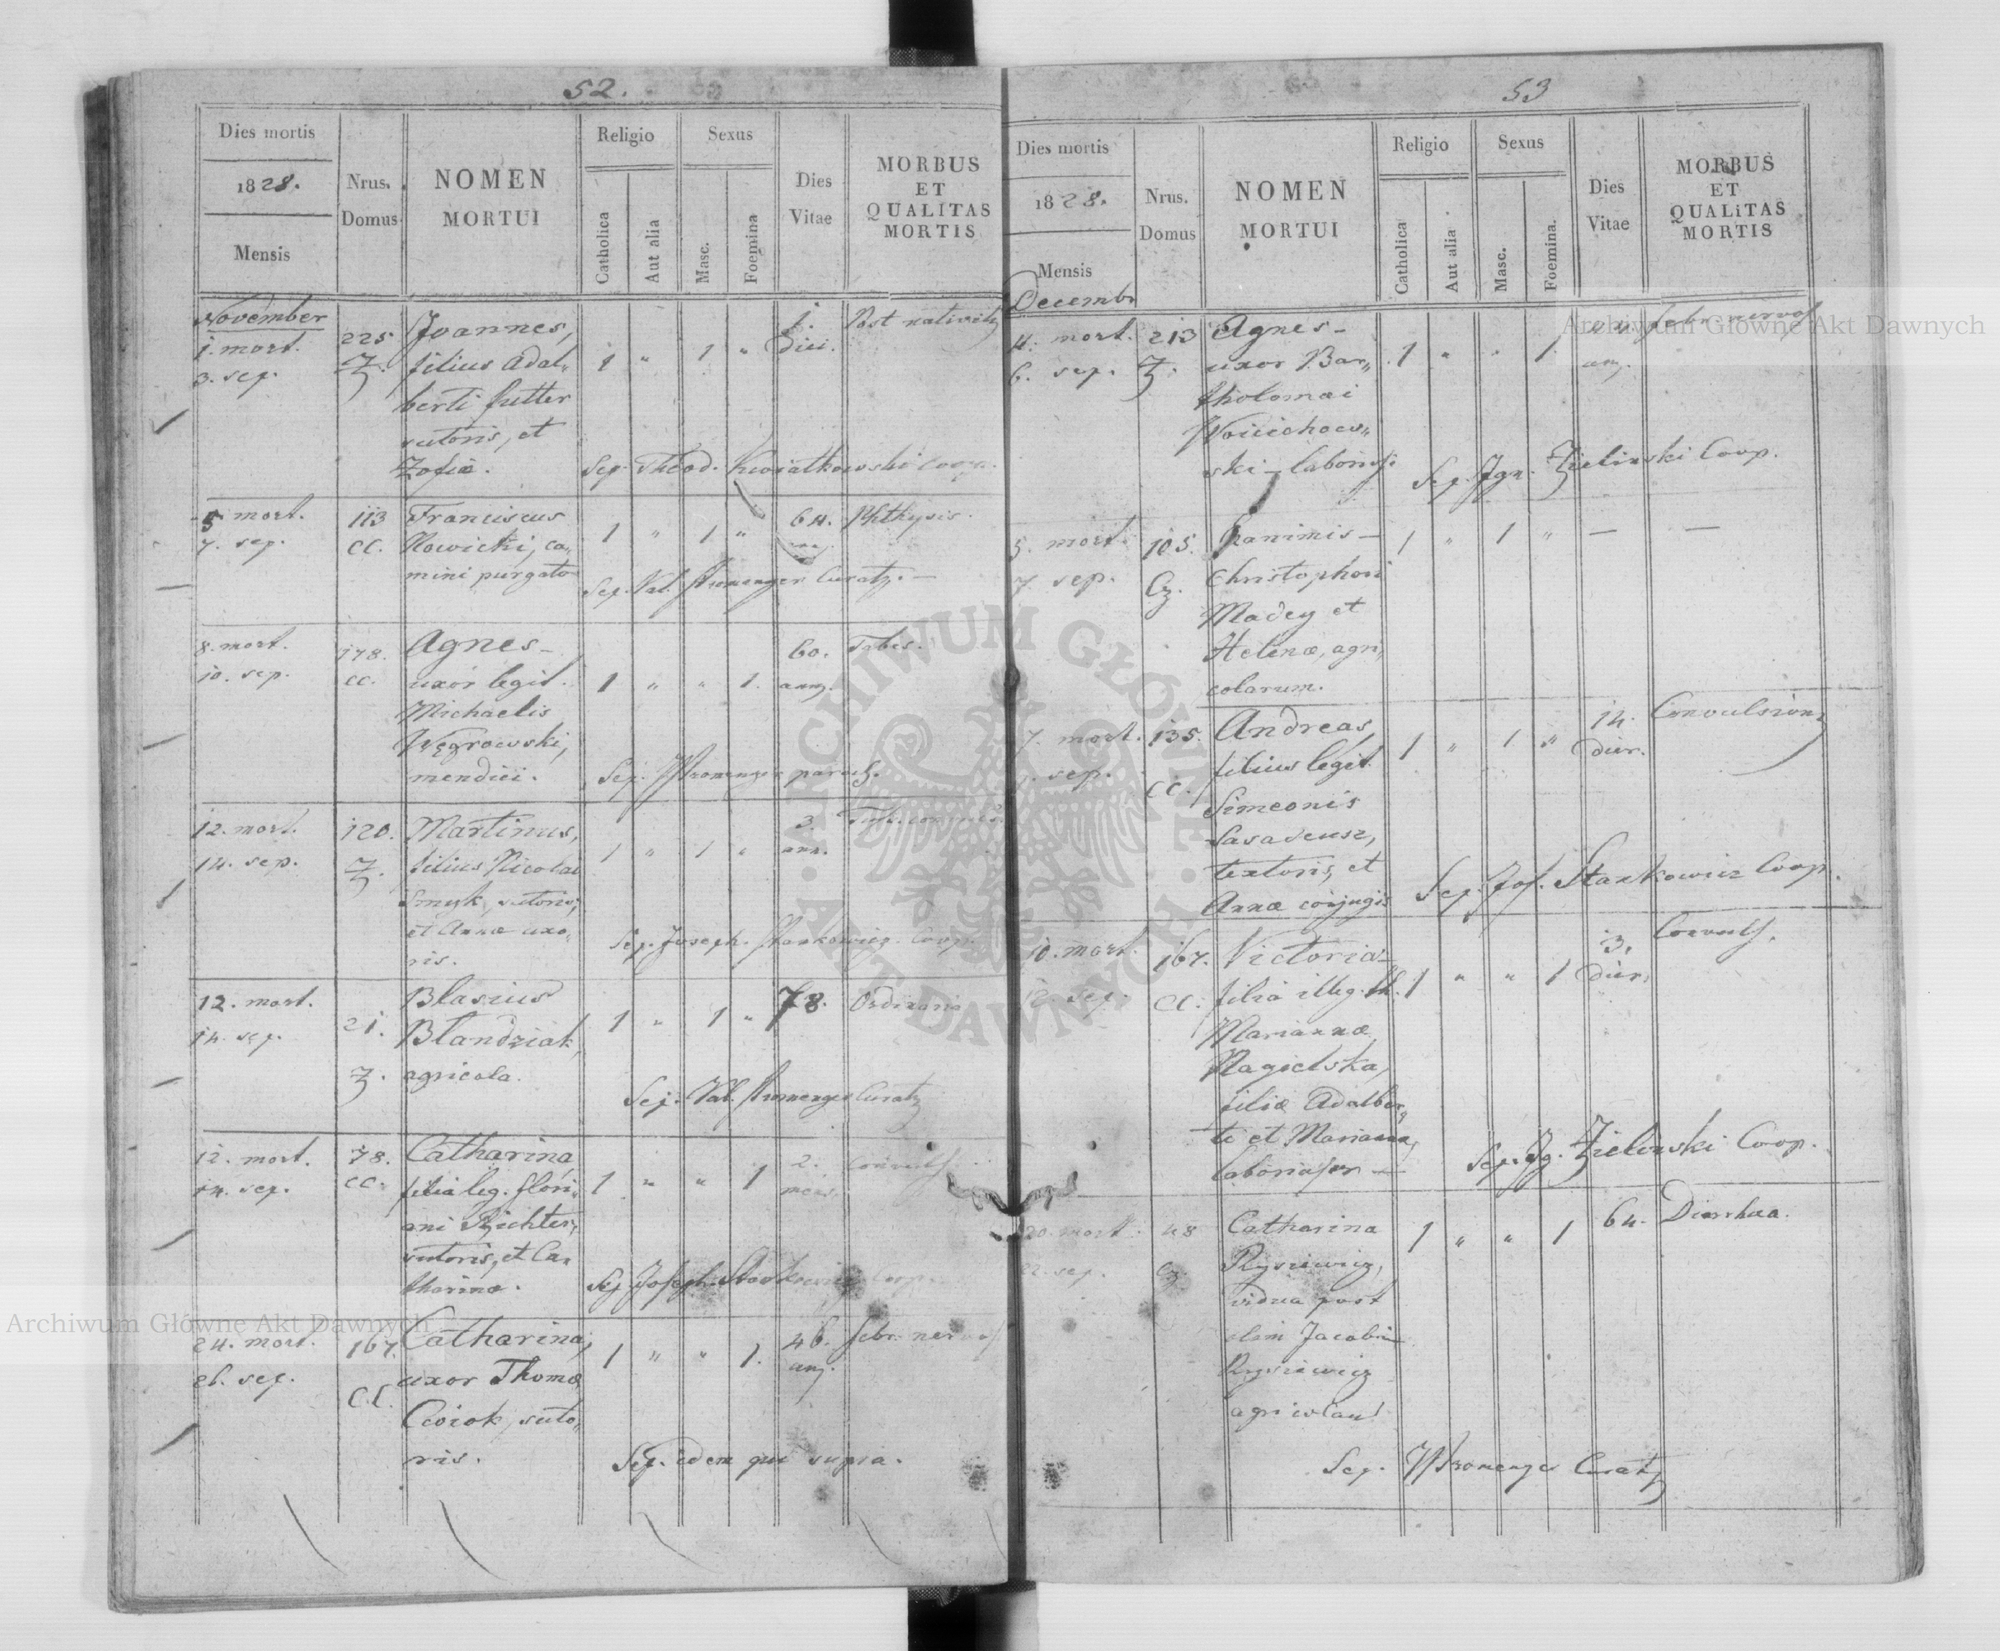 52.
Dies mortis
1828.
Mensis
Nrus.
Domus
NOMEN
MORTUI
Religio
Catholica
Aut alia
Sexus
Masc.
Foemina
Dies
Vitae
MORBUS
ET
QUALITAS
MORTIS
November
1. mort.
3. sep.
225
Z.
Joannes,
filius Adal„
berti
sutoris, et
Zofiæ.
1 „ 1 „
1.
diei.
Post nativit
Sep. Theod. Kwiatkowski Coop.
5 mort.
7. sep.
113
CC.
Franciscus
Nowicki, ca„
mini purgato
1 „ 1 „
64.
Phthysis.
Sep. Val. Curatq. —
8. mort.
10. sep.
178.
CC.
Agnes —
uxor legit.
Michaelis
Węgrowski,
mendici.
1 „ „ 1.
60.
ann.
Tabes.
Sep. paroch.
12. mort.
14. sep.
120.
Z.
Martinus,
filius Nicolai
Smyk, sutoris,
et Annæ uxo„
ris.
1 „ 1 „
3.
ann.
Sep. Joseph. Stankowicz Coop.
12. mort.
14. sep.
21.
Z.
Blasius
Blandziak,
agricola.
1 „ 1 „
78.
Ordinaria
Sep. Val. Curatq
12. mort.
14. sep.
78.
CC.
Catharina
filia leg. Flori„
ani Richter,
sutoris, et Ca„
tharinæ.
1 „ „ 1
2.
Convuls.
Sep. Joseph. Stankowicz Coop.
24. mort.
26. sep.
167.
CC.
Catharina,
uxor Thomæ
Cwiok, suto„
ris.
1 „ „ 1.
46.
ann.
febr. nervos
Sep. idem qui supra.
53
Dies mortis
1828.
Mensis
Nrus.
Domus
NOMEN
MORTUI
Religio
Catholica
Aut alia
Sexus
Masc.
Foemina.
Dies
Vitae
MORBUS
ET
QUALITAS
MORTIS
Decembr
4. mort.
6. sep.
213
Z.
Agnes —
uxor Bar„
tholomæi
Woiciechow„
ski —
1 „ „ 1.
febr. nervos
Sep. Ign. Zielinski Coop.
5. mort.
7. sep.
105.
Cz.
Exanimis —
Christophori
Madey et
Helenæ, agri„
colarum.
1 „ 1 „ — —
7. mort.
sep.
135.
CC.
Andreas,
filius legit.
Simeonis
Sasadeusz,
textoris, et
Annæ conjugis
1 „ 1 „
14.
dier.
Convulsion
Sep. Jos. Stankowicz Coop.
10. mort.
12. sep.
167.
CC.
Victoria —
filia illeg. th.
Mariannæ
Nagielska,
filiæ Adalber„
ti et Mariannæ,
1 „ „ 1
3.
dier.
Convuls.
Sep. Ig. Zielinski Coop.
20. mort.
22. sep.
48
Cz
Catharina
Rysiewicz,
vidua post
olim Jacobum
Rysiewicz
agricolam
1 „ „ 1
64.
Diarrhaea.
Sep. Curatq
ARCHIWUM GŁÓWNE AKT DAWNYCH
Archiwum Główne Akt Dawnych
Archiwum Główne Akt Dawnych